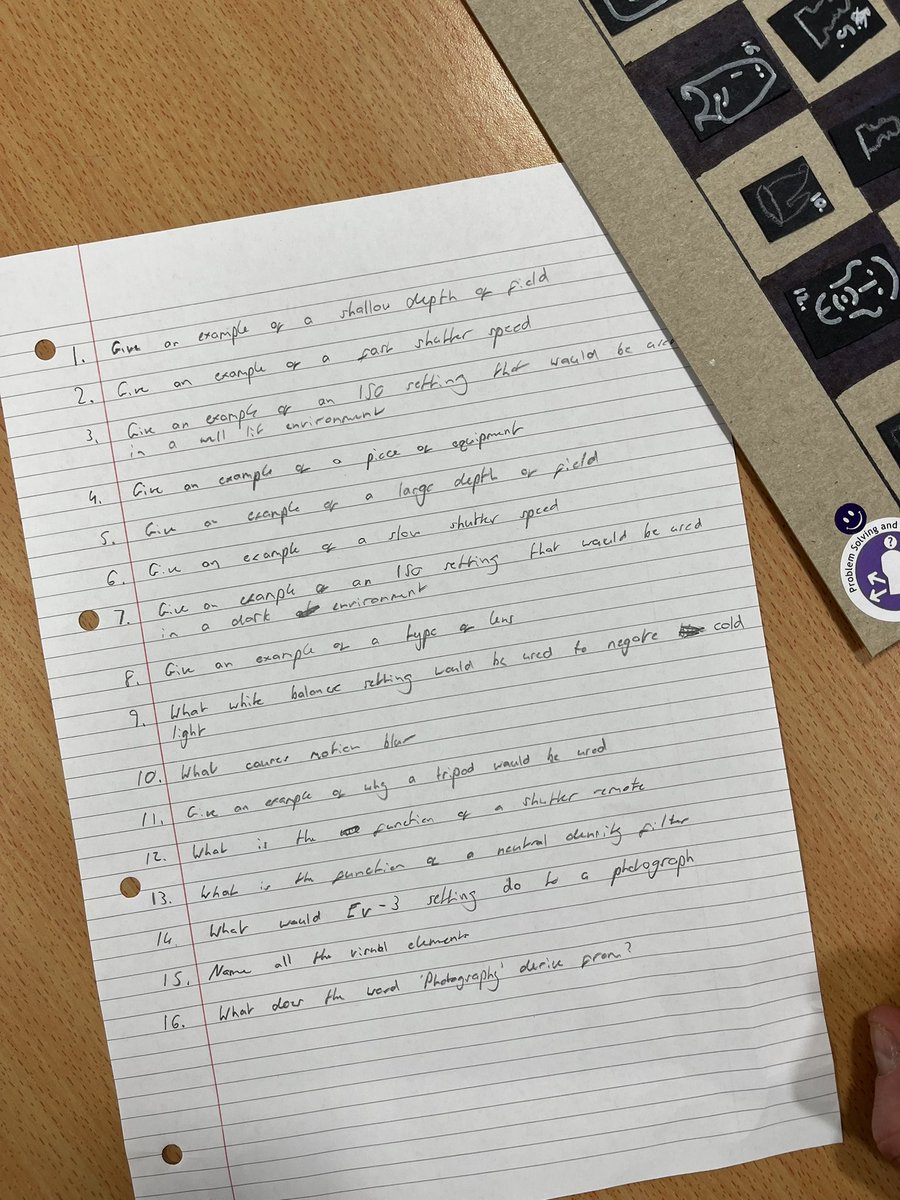 1. Give an example of a shallow depth of field
2. Give an example of a fast shutter speed
3. Give an example of an ISO setting that would be used
in a well lit environment
4. Give an example of a piece of equipment
5. Give an example of a large depth of field
6. Give an example of a slow shutter speed
7. Give an example of an ISO setting that would be used
in a dark environment
8. Give an example of a type of lens
9. What white balance setting would be used to negate cold
light
10. What causes motion blur
11. Give an example of why a tripod would be used
12. What is the function of a shutter remote
13. What is the function of a neutral density filter
14. What would Ev-3 setting do to a photograph
15. Name all the visual elements
16. What does the word 'Photography' derive from?
10.
12.
Problem Solving and
?